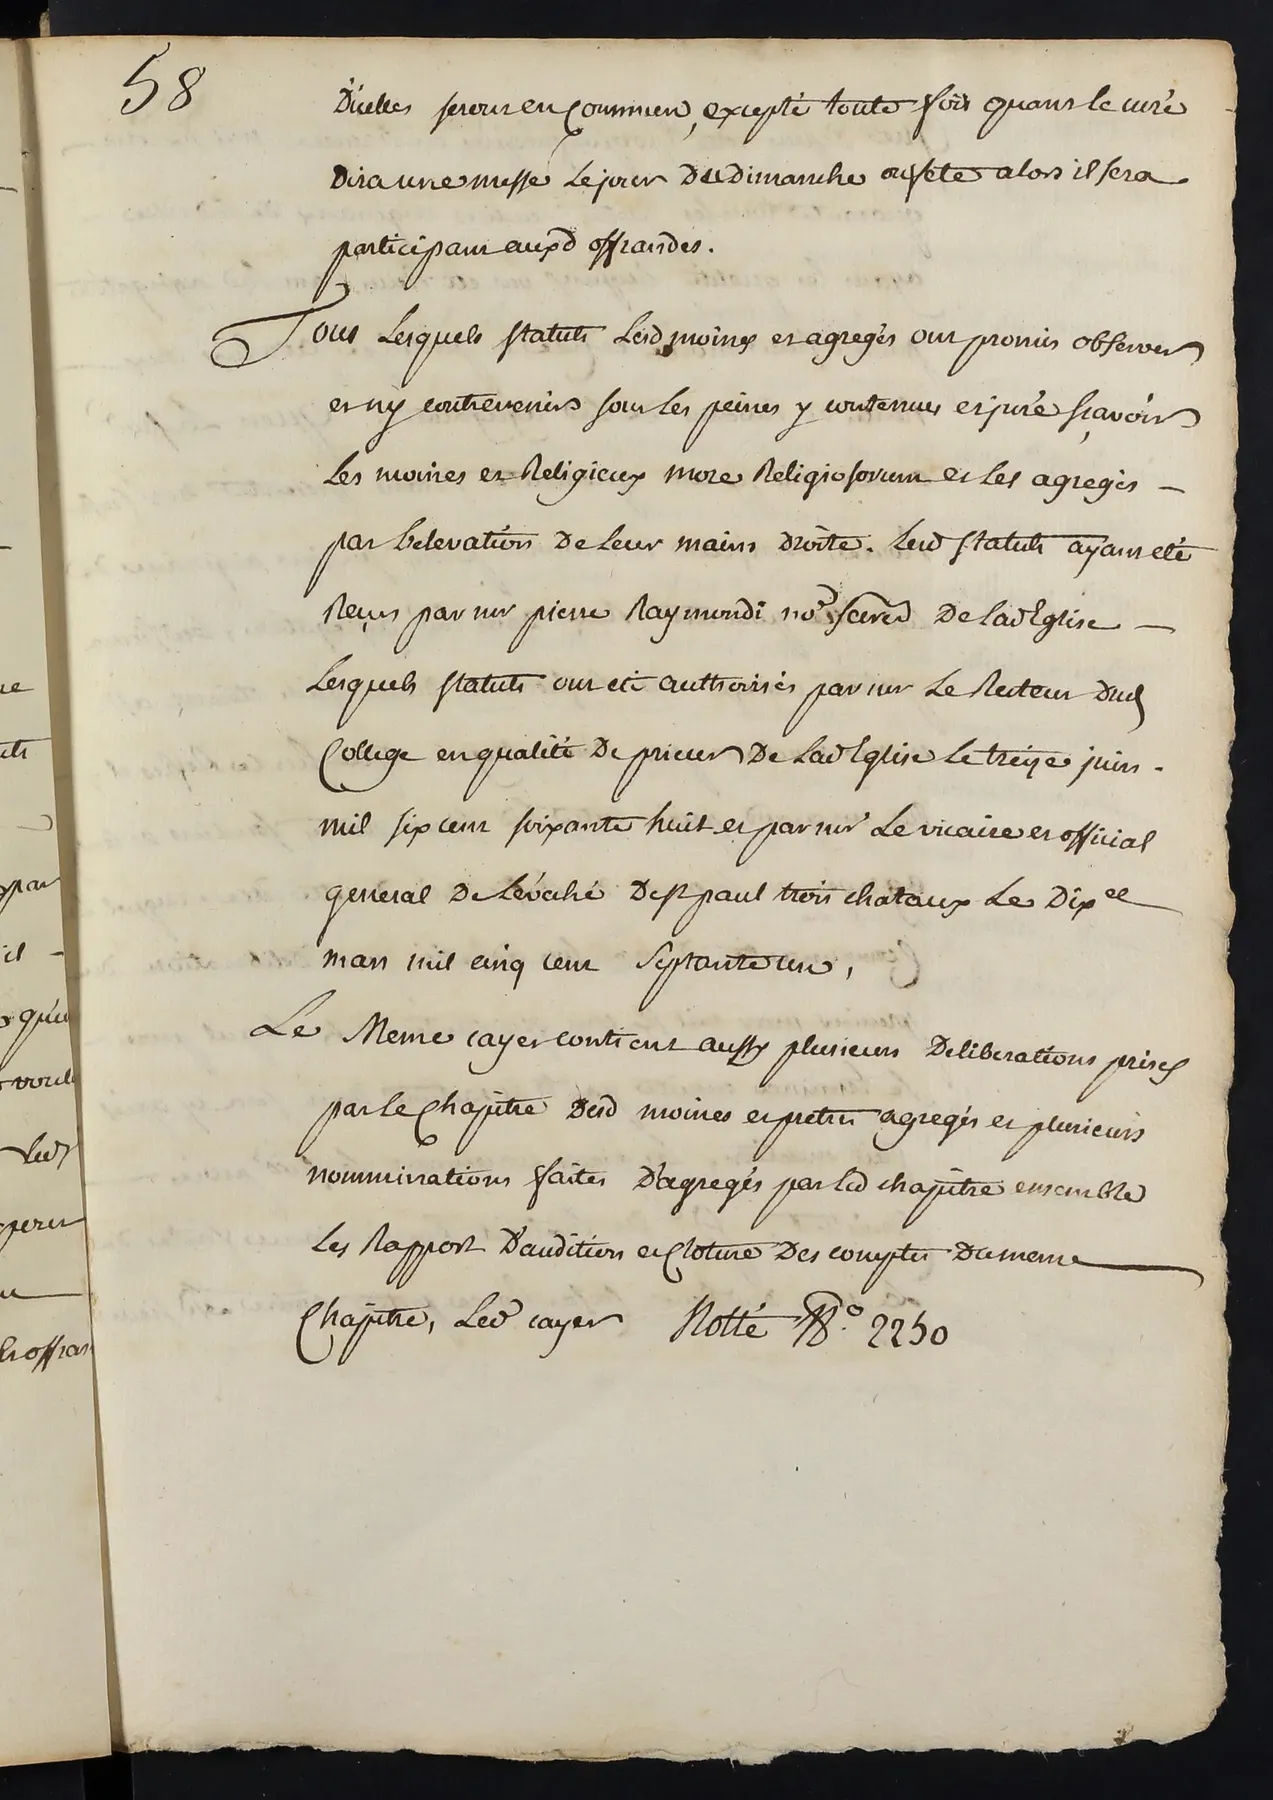 58
D'icelles seront en Commun, excepté toute fois quant le curé
Dira une messe Le jour Du Dimanche ou fete alors il sera
participant auxd offrandes.
Tous Lesquels statuts Lesd moines et agregés ont promis observer
et n'y contrevenir sous les peines y contenues et juré sçavoir
Les moines et Religieux more Religiosorum et Les agregés -
par L'elevation De Leur mains Droite. Lesd statuts ayant eté
Reçus par mr pierre Raymondi nore secred De Lad Eglise -
Lesquels statuts ont eté authorisés par mr Le Recteur Dud
College en qualité De prieur De Lad Eglise Le treize juin -
mil six cent soixante huit et par mr Le vicaire et official
general De L'éveché De st paul trois chataux Le Dixee
mars mil cinq cent septante un,
Le Meme cayer contient aussy plusieurs Deliberations prises
par Le Chapitre Desd moines et pretres agregés et plusieurs
nomminations faites D'agregés par Led chapitre ensemble
Les Rapport D'audition et Cloture Des comptes Du meme
Chapitre, Led cayer Notté No. 2250
ue
par
il -
qu'u
Led
Les offran